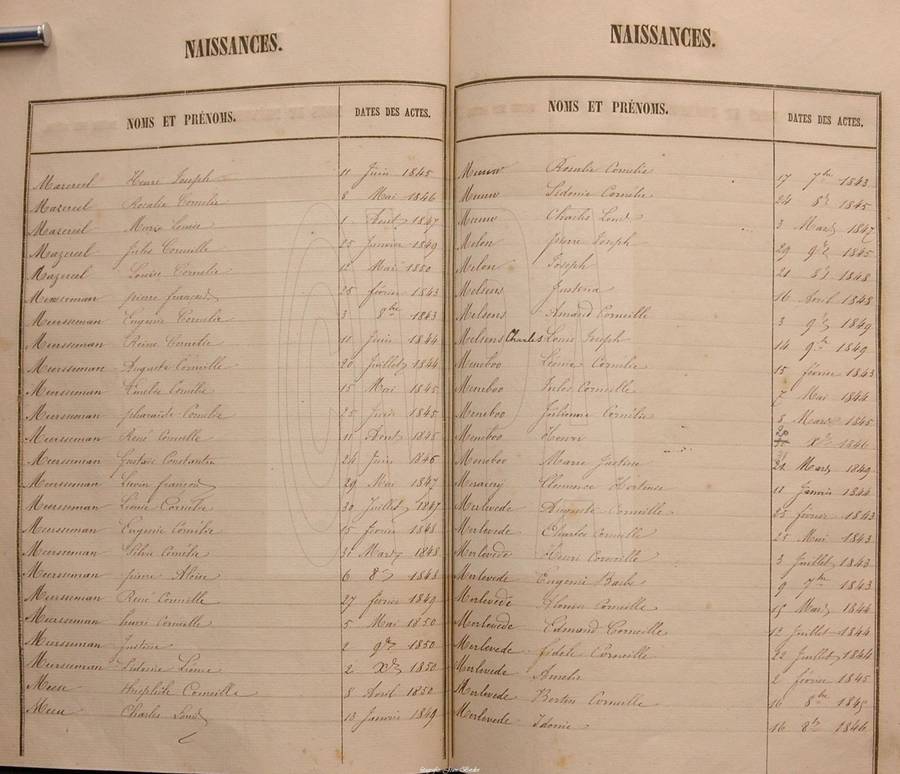 NAISSANCES.
NOMS ET PRÉNOMS. DATES DES ACTES.
Mazereel Henri Joseph 11 Juin 1845
Mazereel Rosalie Cornelie 8 Mai 1846
Mazereel Marie Louise 1 Août 1847
Mazereel Jules Corneille 25 Janvier 1849
Mazereel Louise Cornelie 12 Mai 1850
Meersseman pierre 28 fevrier 1843
Meersseman Eugenie Cornelie 3 8bre 1843
Meersseman Reine Cornelie 11 Juin 1844
Meersseman Auguste Corneille 20 Juillet 1844
Meersseman Camille 15 Mai 1845
Meersseman pharailde Cornelie 25 Juin 1845
Meersseman René Corneille 11 Aout 1845
Meersseman Gustave Constantin 24 Juin 1846
Meersseman Livin francois 29 Mai 1847
Meersseman Léonie Cornelie 30 Juillet 1847
Meersseman Eugenie Cornelie 15 fevrier 1848
Meersseman Silvie Cornelie 31 Mars 1848
Meersseman pierre Aloise 6 1848
Meersseman René Corneille 27 fevrier 1849
Meersseman henri Corneille 5 Mai 1850
Meersseman Justine 2 9bre 1850
Meersseman Ludovie Léonie 2 Xbre 1850
Meeu Corneille 8 Avril 1850
Meeu Charles Louis 13 Janvier 1849
NAISSANCES.
NOMS ET PRÉNOMS. DATES DES ACTES.
Meeuw Rosalie Cornelie 17 7bre 1843
Meeuw Sidonie Cornelie 24 8bre 1845
Meeuw Charles Louis 3 Mars 1847
Melon pierre Joseph 29 9bre 1845
Melon Joseph 21 1848
Melsens Justina 16 Avril 1848
Melsens Amand Corneille 3 9bre 1849
Melsens Charles Louis Joseph 14 9bre 1849
Meneboo Léonie Cornelie 15 fevrier 1843
Meneboo Jules Corneille 7 Mai 1844
Meneboo Julienne Cornelie 8 Mars 1845
Meneboo Henri 20 Xbre 1846
Meneboo Marie Justine 22 Mars 1849
Clemence Hortense 11 Janvier 1844
Merlevede Auguste Corneille 25 fevrier 1843
Merlevede Charles Corneille 25 Mai 1843
Merlevede Henri Corneille 3 Juillet 1843
Merlevede Eugenie Barbe 9 7bre 1843
Merlevede Alonse Corneille 15 Mars 1844
Merlevede Edmond Corneille 12 Juillet 1844
Merlevede fidele Corneille 22 Juillet 1844
Merlevede Amelie 2 fevrier 1845
Merlevede Bertin Corneille 16 8bre 1845
Merlevede Idonie 16 8bre 1846